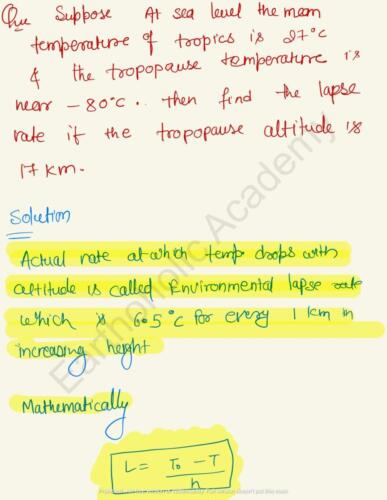 Que Suppose At sea level the mean
temperature of tropics is 27°C
& the tropopause temperature is
near -80°C. then find the lapse
rate if the tropopause altitude is
17 km.
Solution
Actual rate at which temp drops with
altitude is called Environmental lapse rate
which is 6.5°C for every 1 km in
increasing height
Mathematically
L = T₀ - T / h
Earthoholic Academy